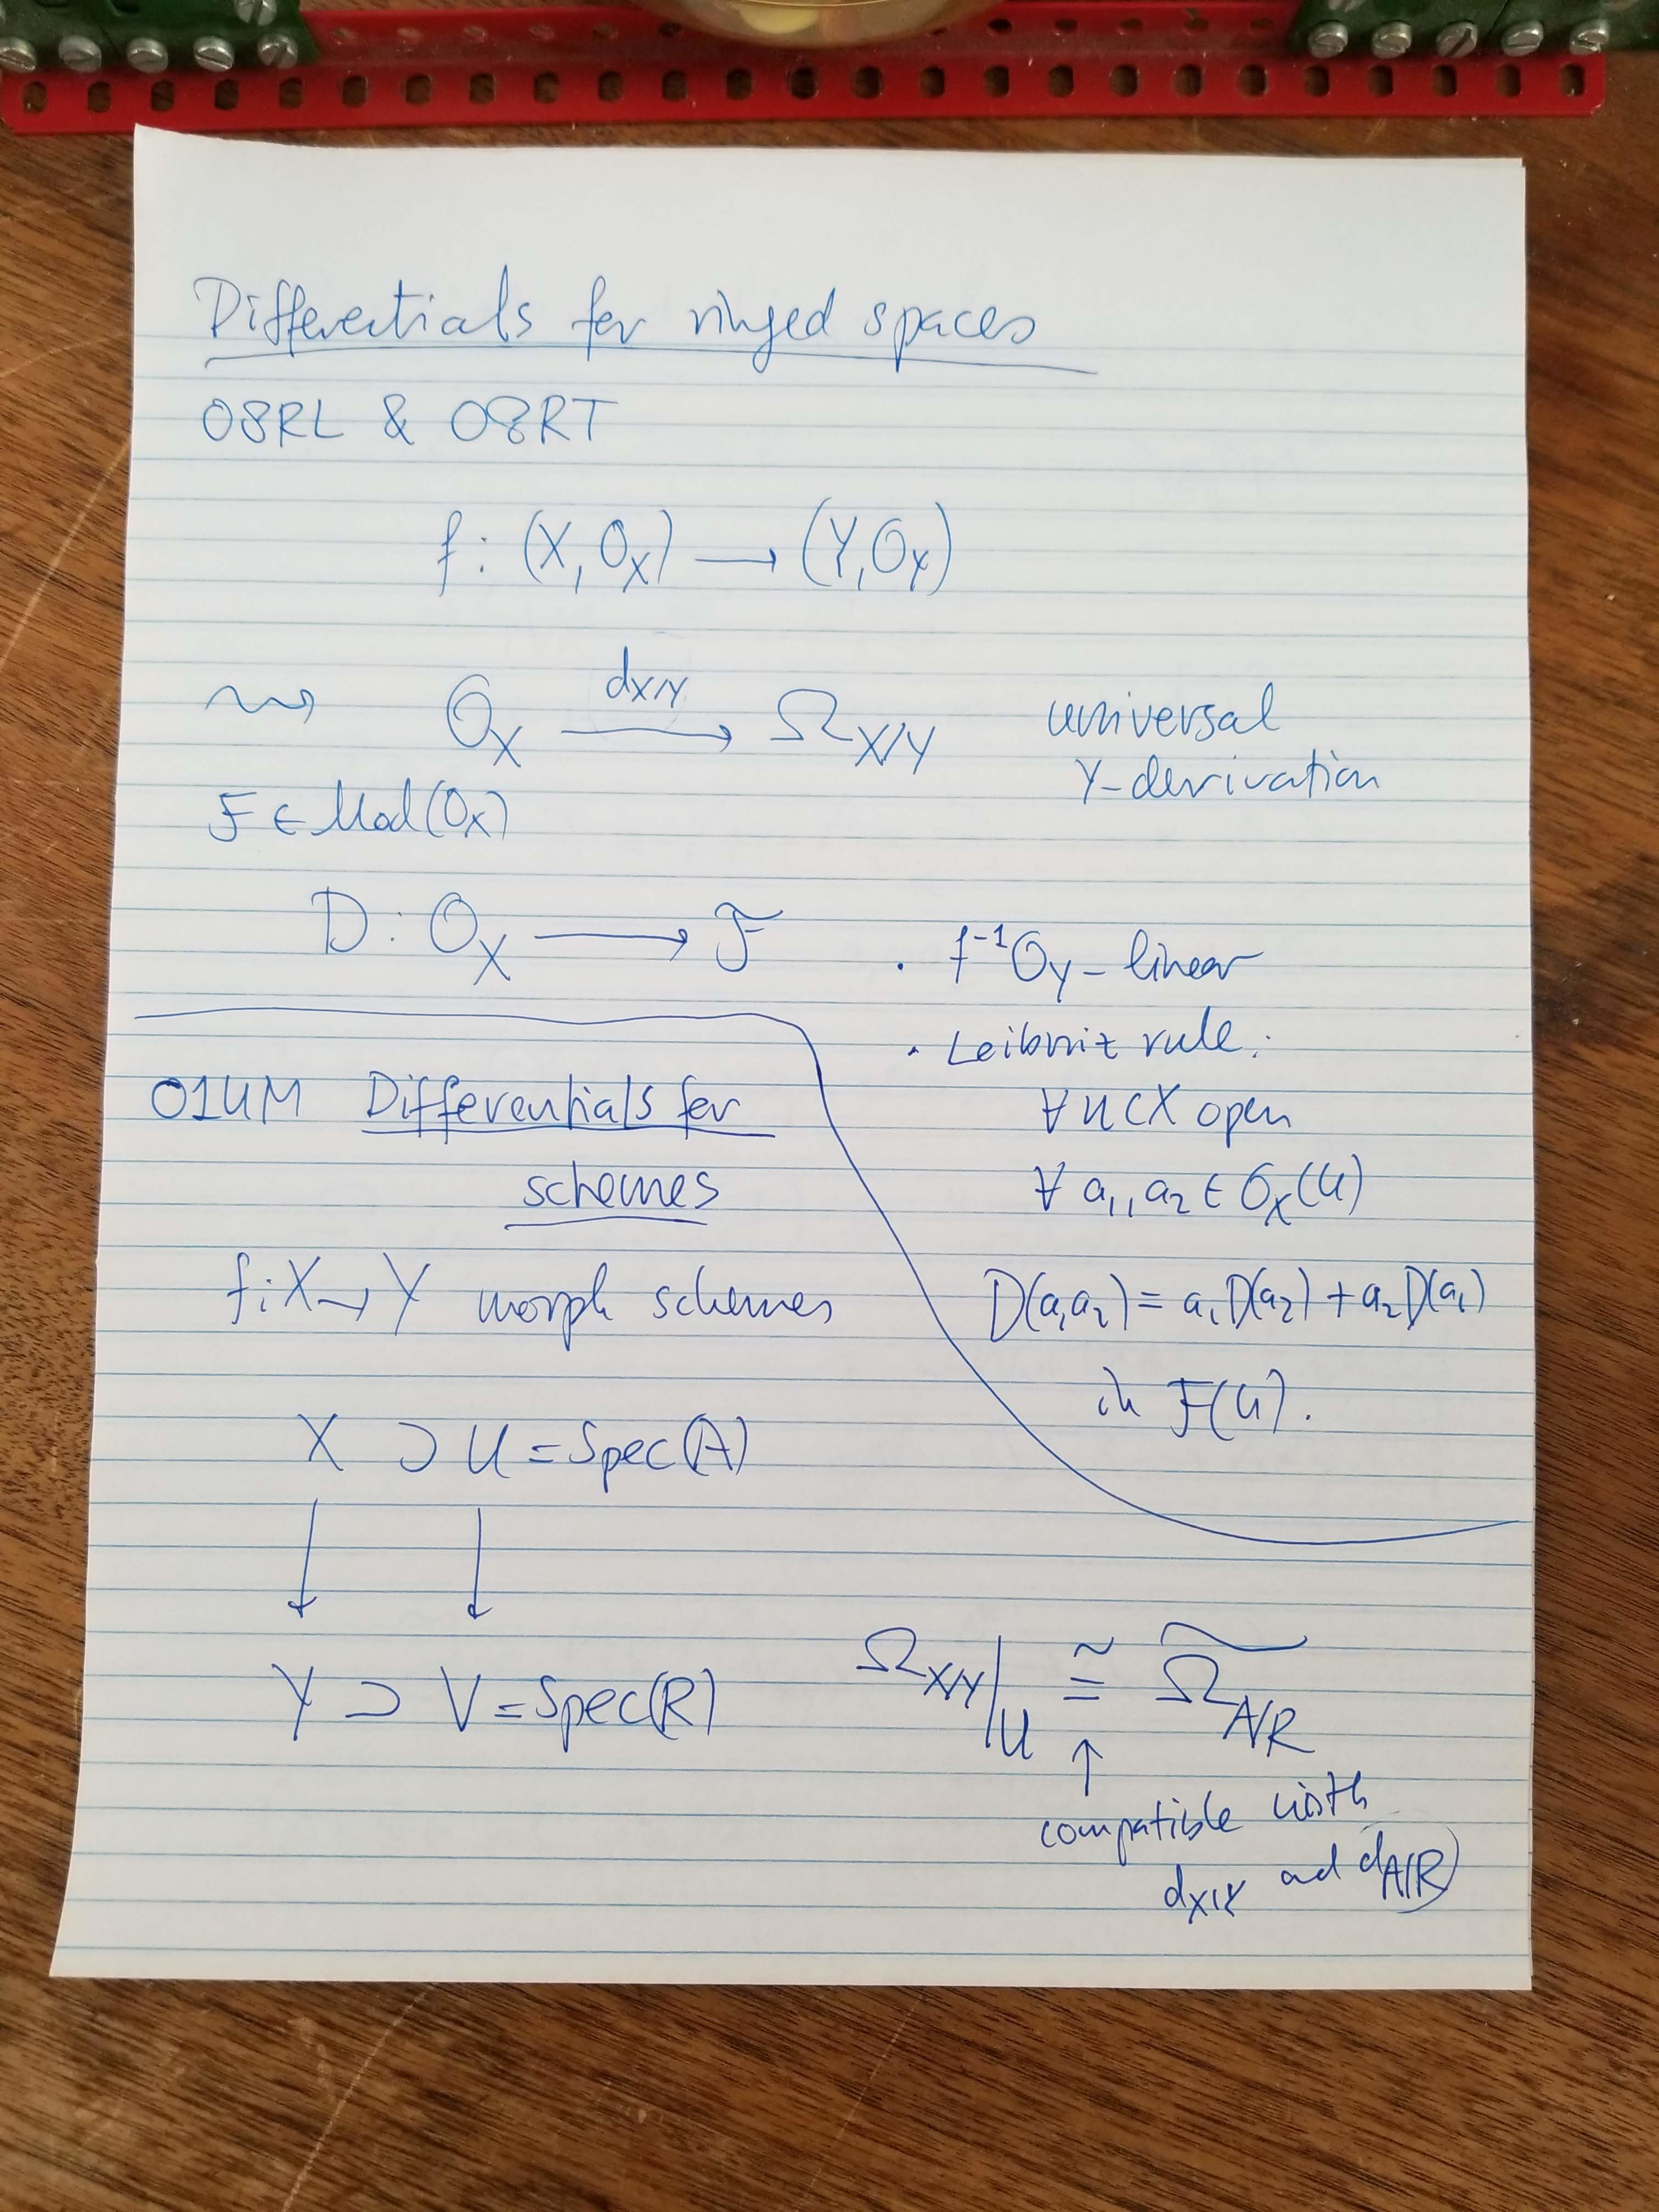 Differentials for ringed spaces
08RL & 08RT
f : (X, O_X) → (Y, O_Y)
⇝ O_X —d_{X/Y}→ Ω_{X/Y} universal
Y-derivation
F ∈ Mod(O_X)
D : O_X → F
· f^{-1}O_Y - linear
· Leibniz rule:
∀ U ⊂ X open
∀ a_1, a_2 ∈ O_X(U)
D(a_1a_2) = a_1D(a_2) + a_2D(a_1)
in F(U).
01UM Differentials for
schemes
f : X → Y morph schemes
X ⊃ U = Spec(A)
↓ ↓
Y ⊃ V = Spec(R)
Ω_{X/Y}|_U ≅ \widetilde{Ω_{A/R}}
↑
compatible with
d_{X/Y} and d_{A/R}